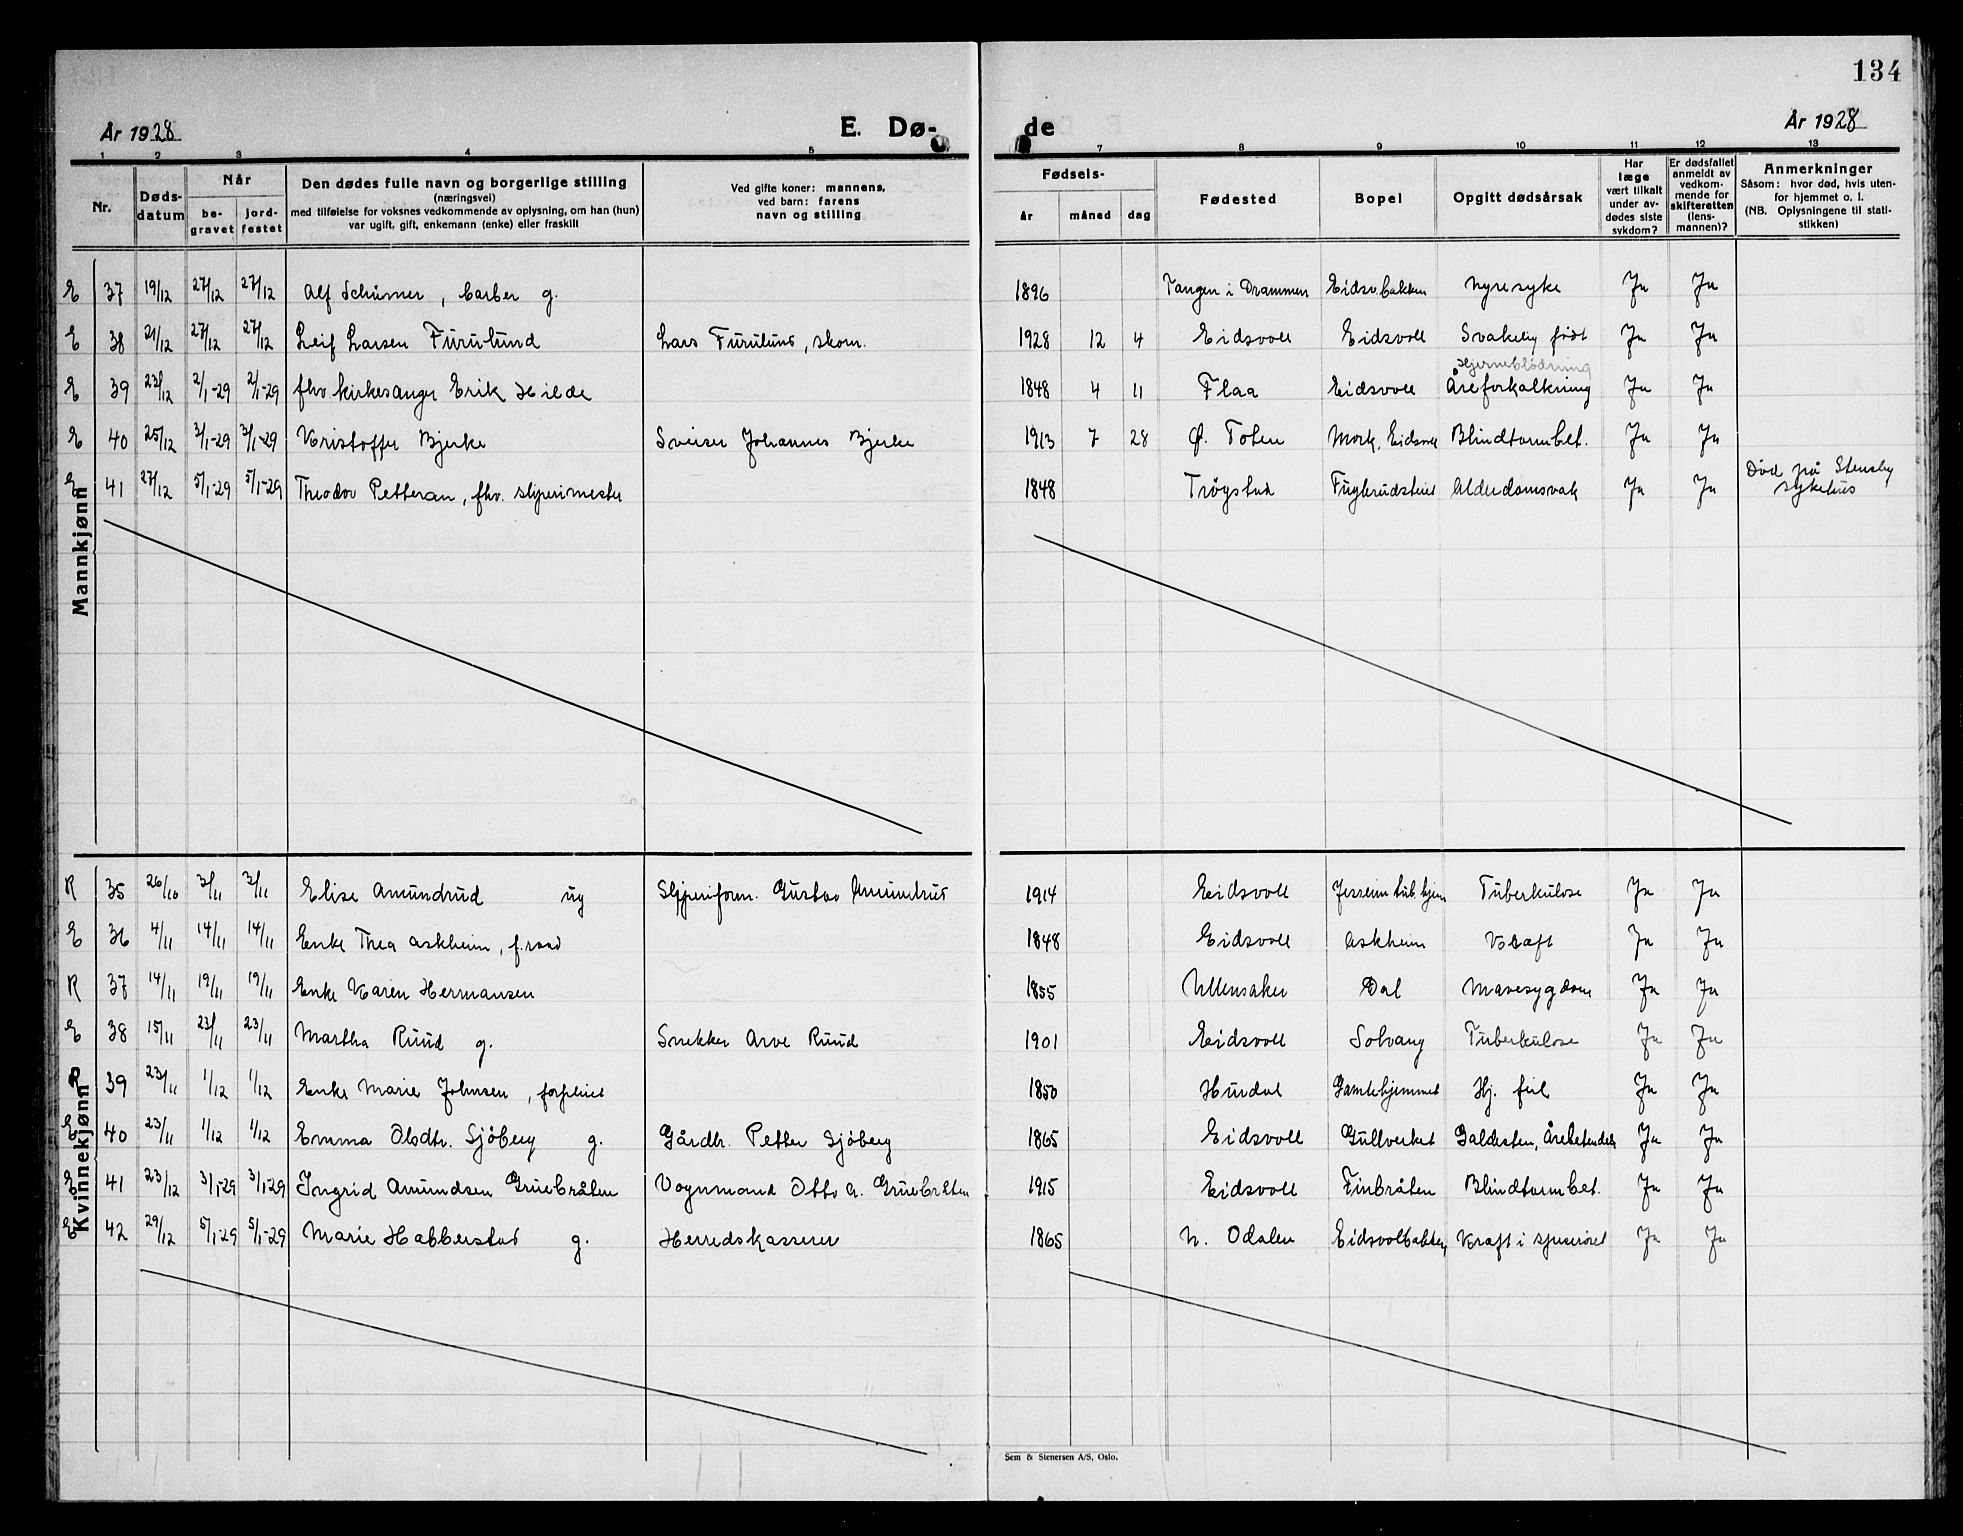 134
År 1928 E. Dø- de År 1928
1 2 3 4 5 7 8 9 10 11 12 13
Nr. Døds-datum Når be-gravet jord-festet Den dødes fulle navn og borgerlige stilling (næringsvei) med tilføielse for voksnes vedkommende av oplysning, om han (hun) var ugift, gift, enkemann (enke) eller fraskilt Ved gifte koner: mannens, ved barn: farens navn og stilling Fødsels- år måned dag Fødested Bopel Opgitt dødsårsak Har læge vært tilkalt under av-dødes siste sykdom? Er dødsfallet anmeldt av vedkom-mende for skifteretten (lens-mannen)? Anmerkninger Såsom: hvor død, hvis uten-for hjemmet o. l. (NB. Oplysningene til stati-stikken)
Mannkjønn
E 37 19/12 27/12 27/12 Alf Schüsner, barber g. 1896 Tangen i Drammen Eidsv.bakken Nyresyke Ja Ja
E 38 21/12 27/12 27/12 Leif Larsen Furulund Lars Furulund, skom. 1928 12 4 Eidsvoll Eidsvoll Svakelig født Ja Ja
Hjerneblødning
E 39 23/12 2/1-29 2/1-29 fhv. kirkesanger Erik Hilde 1848 4 11 Flaa Eidsvoll Åreforkalkning Ja Ja
E 40 25/12 3/1-29 3/1-29 Kristoffer Bjerke Sveiser Johannes Bjerke 1913 7 28 Ø. Toten Mork, Eidsvoll Blindtarmbet. Ja Ja
E 41 27/12 5/1-29 5/1-29 Theodor Petteran, fhv. sliperimester 1848 Trøgstad Alderdomsvak Ja Ja Død på Stensby
sykehus
Kvinnekjønn
R 35 26/10 3/11 3/11 Elise Amundrud ug Sliperiform. Gustav Amundrud 1914 Eidsvoll Jessheim tub.hjem Tuberkulose Ja Ja
E 36 4/11 14/11 14/11 Enke Thea Askheim, f.raad 1848 Eidsvoll Askheim Kræft Ja Ja
R 37 14/11 19/11 19/11 Enke Karen Hermansen 1855 Ullensaker Dal Mavesygdom Ja Ja
E 38 15/11 23/11 23/11 Martha Ruud g. Snekker Arve Ruud 1901 Eidsvoll Solvang Tuberkulose Ja Ja
R 39 23/11 1/12 1/12 Enke Marie Johnsen, forpleiet 1850 Hurdal Gamlehjemmet Hj. feil Ja Ja
E 40 23/11 1/12 1/12 Emma Olsdtr. Sjøberg g. Gårdbr. Petter Sjøberg 1865 Eidsvoll Gullverket Galdesten, Årebetendels Ja Ja
E 41 23/12 3/1-29 3/1-29 Ingrid Amundsen Gruebråten Vognmand Otto A. Gruebråten 1915 Eidsvoll Finbråten Blindtarmbet. Ja Ja
E 42 29/12 5/1-29 5/1-29 Marie Habberstad g. Herredskasserer 1865 N. Odalen Eidsvollbakken Kræft i spiserøret Ja Ja
Sem & Stenersen A/S, Oslo.